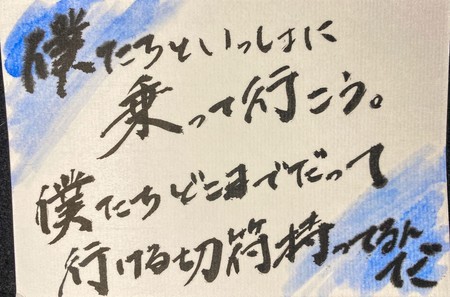 僕たちといっしょに
乗って行こう。
僕たちどこまでだって
行ける切符持ってるん
だ